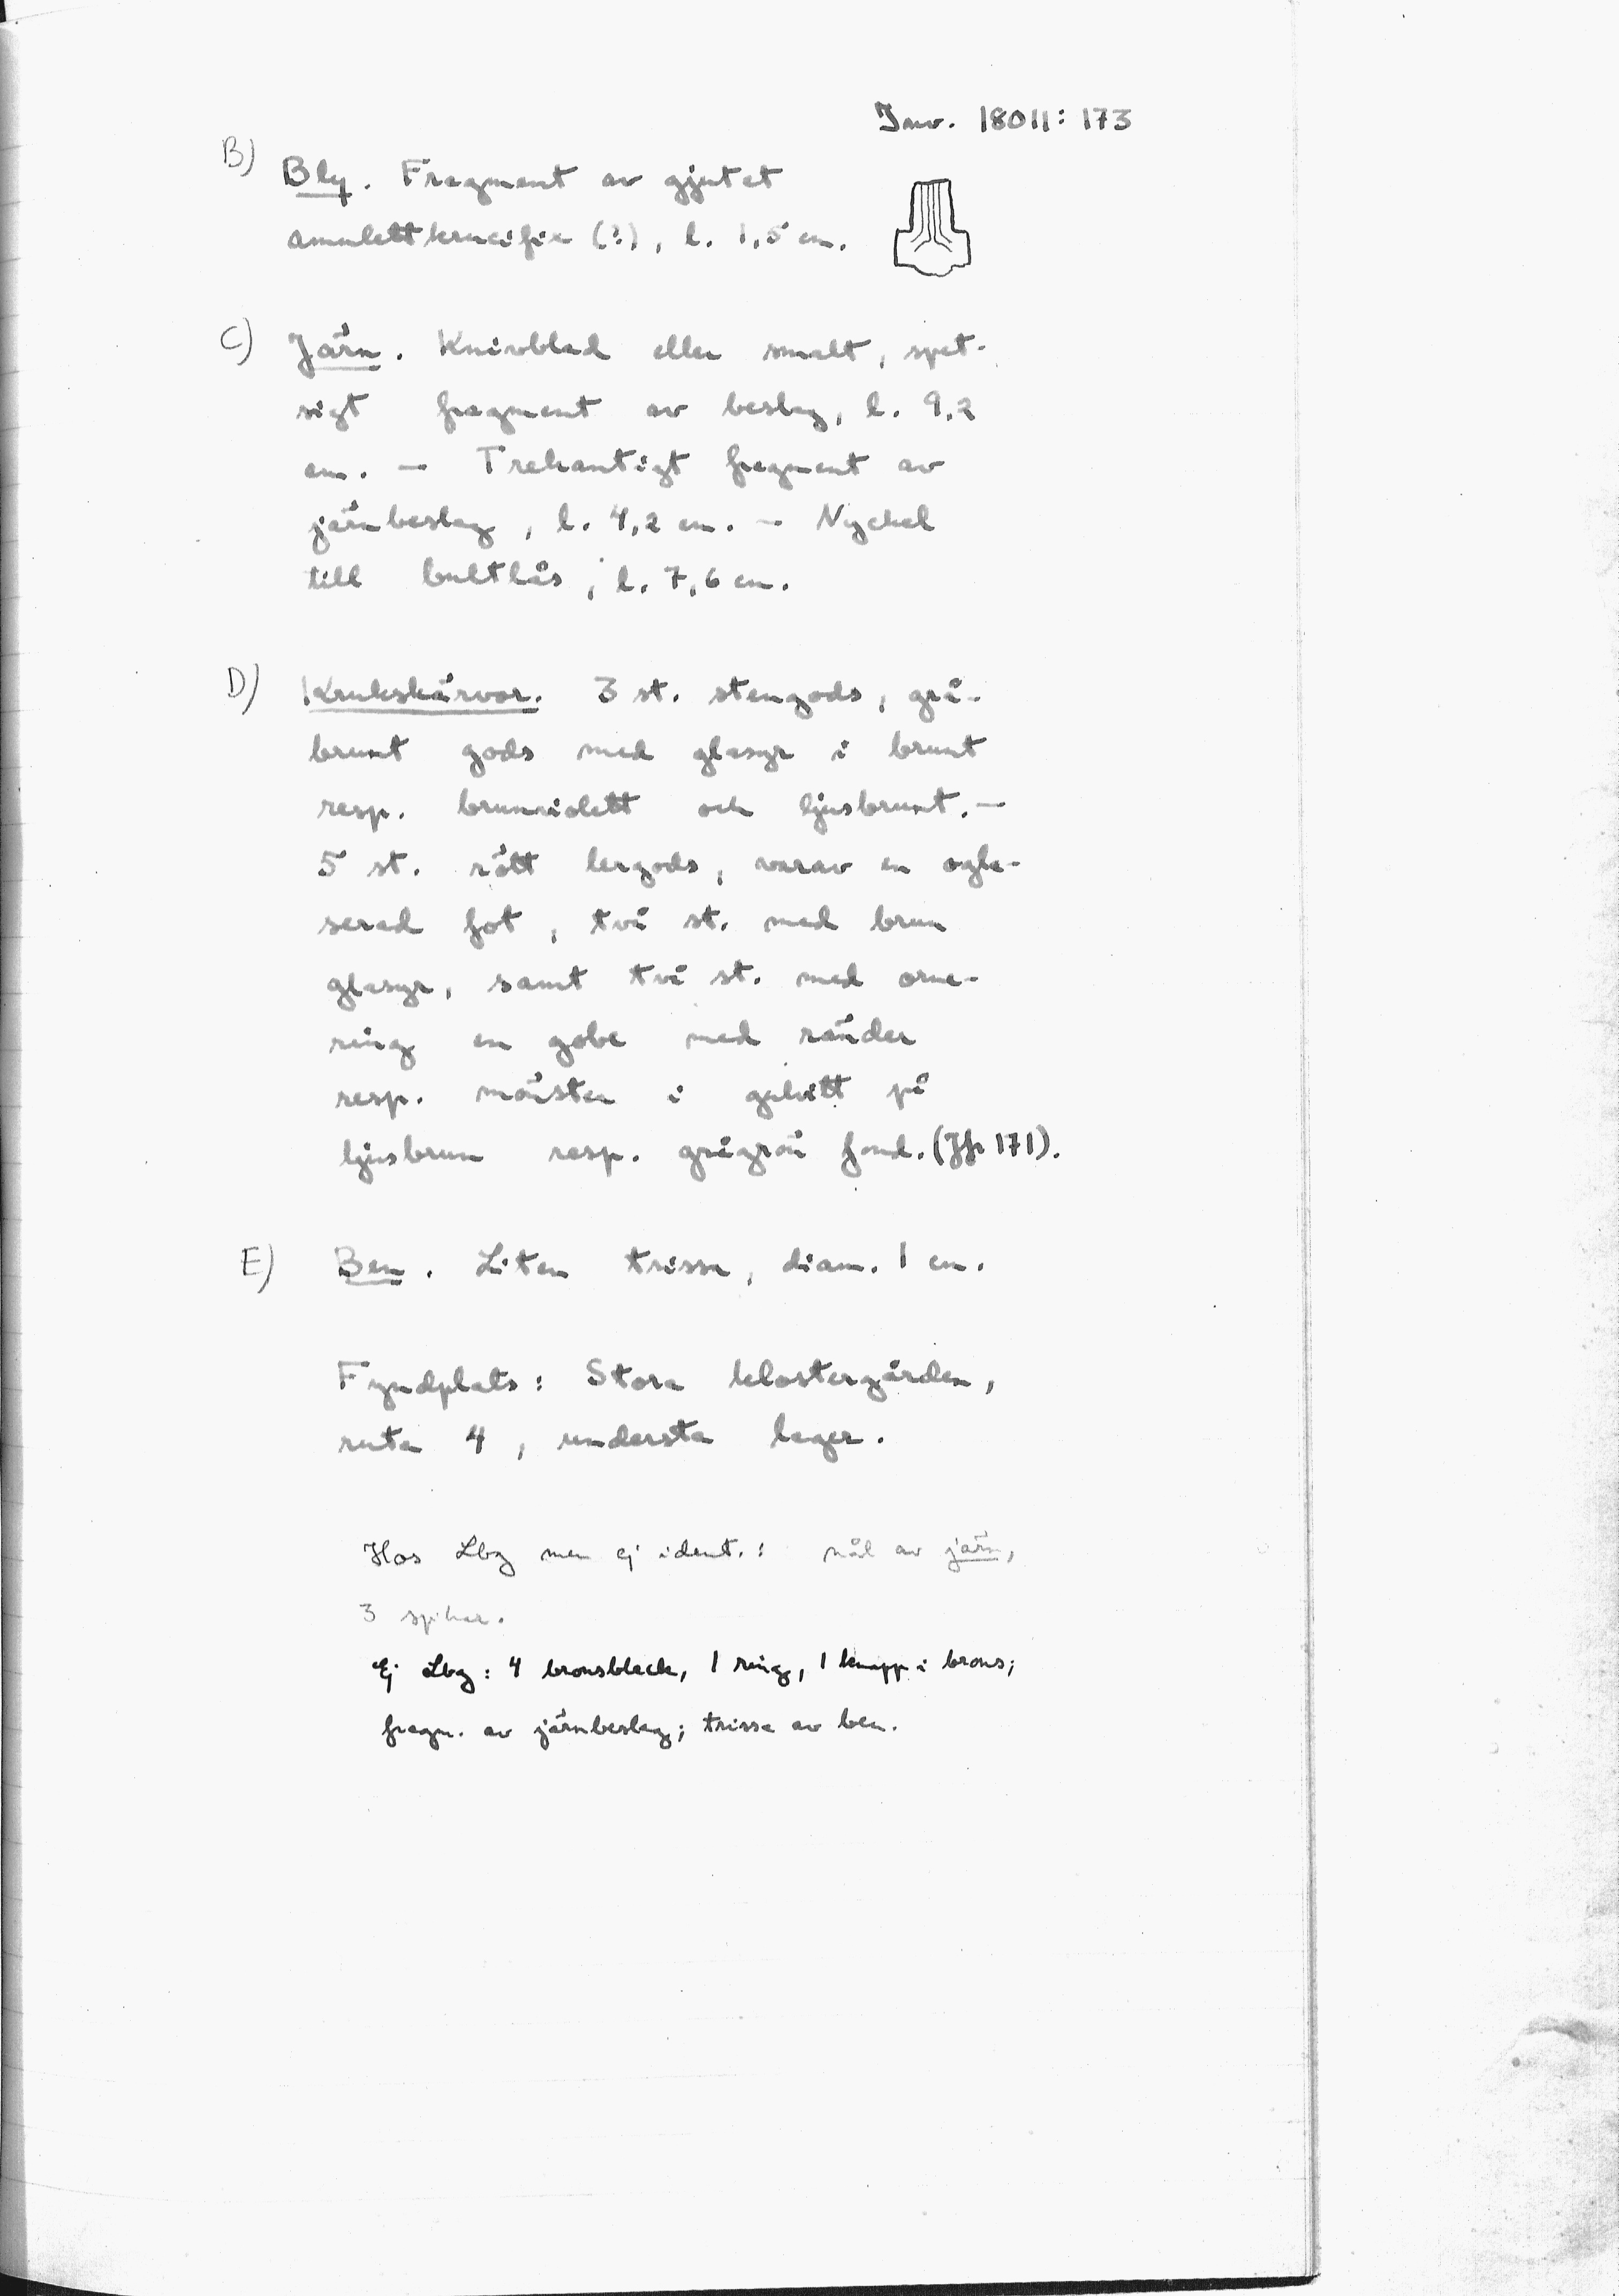 Inv. 18011: 173
B) Bly. Fragment av gjutet
amulettkrucifix (?), l. 1,5 cm.
C) Järn. Knivblad eller smalt, spet-
sigt fragment av beslag, l. 9,2
cm. — Trekantigt fragment av
järnbeslag, l. 4,2 cm. — Nyckel
till bultlås, l. 7,6 cm.
D) Krukskärvor. 3 st. stengods, grå-
brunt gods med glasyr i brunt
resp. brunviolett och ljusbrunt. —
5 st. rött lergods, varav en ogla-
serad fot, två st. med brun
glasyr, samt två st. med orne-
ring en gobe med ränder
resp. mönster i gulvitt på
ljusbrun resp. grågrön fond. (Jfr 171).
E) Ben. Liten trissa, diam. 1 cm.
Fyndplats: Stora klostergården,
ruta 4, understa lager.
Hos Lbg men ej ident.: nål av järn,
3 spikar.
Ej Lbg: 4 bronsbleck, 1 ring, 1 knapp i brons;
fragm. av järnbeslag; trissa av ben.